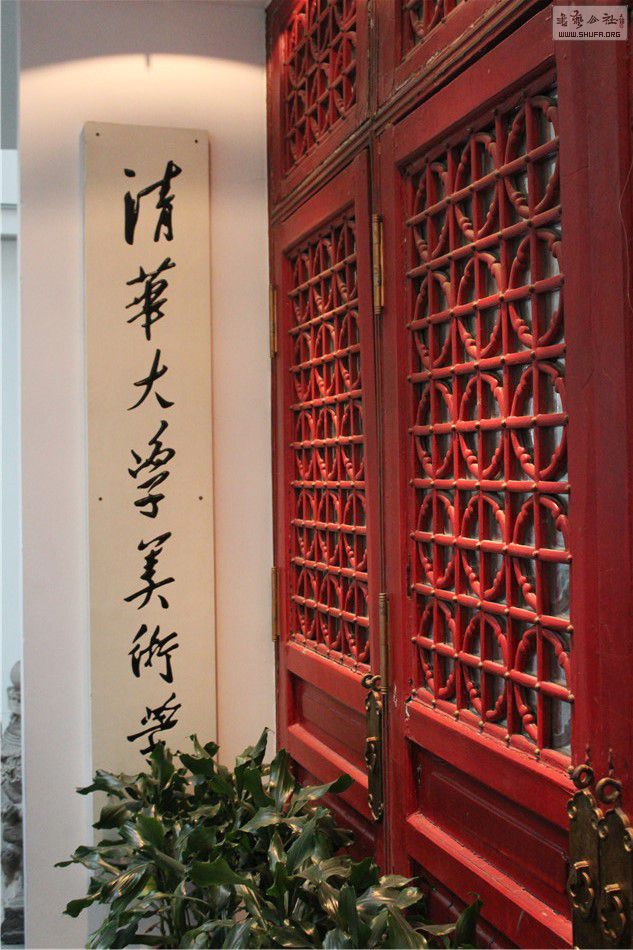 清華大學美術學
書藝公社
WWW.SHUFA.ORG